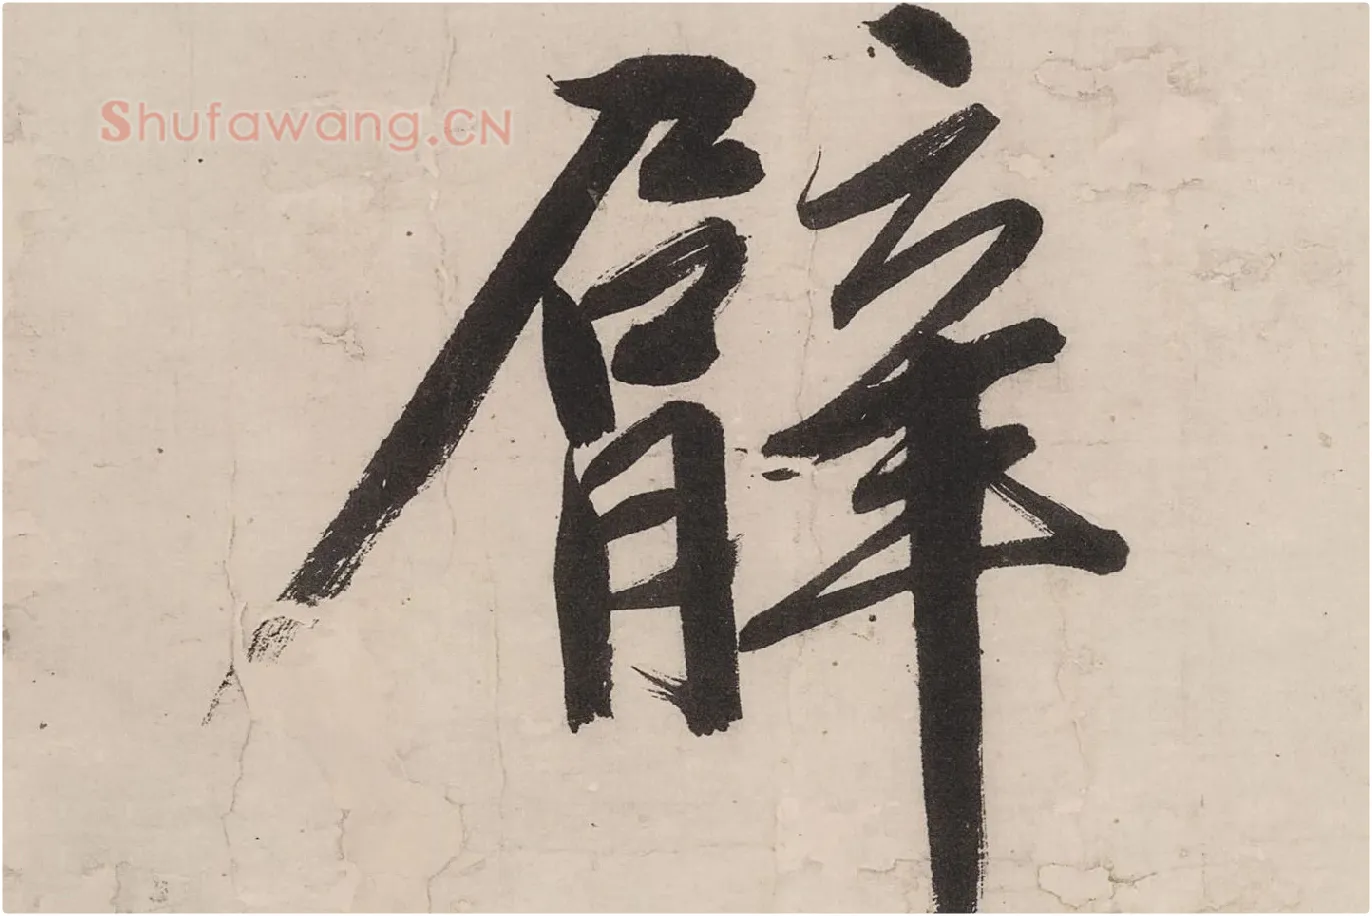 Shufawang.CN
臂